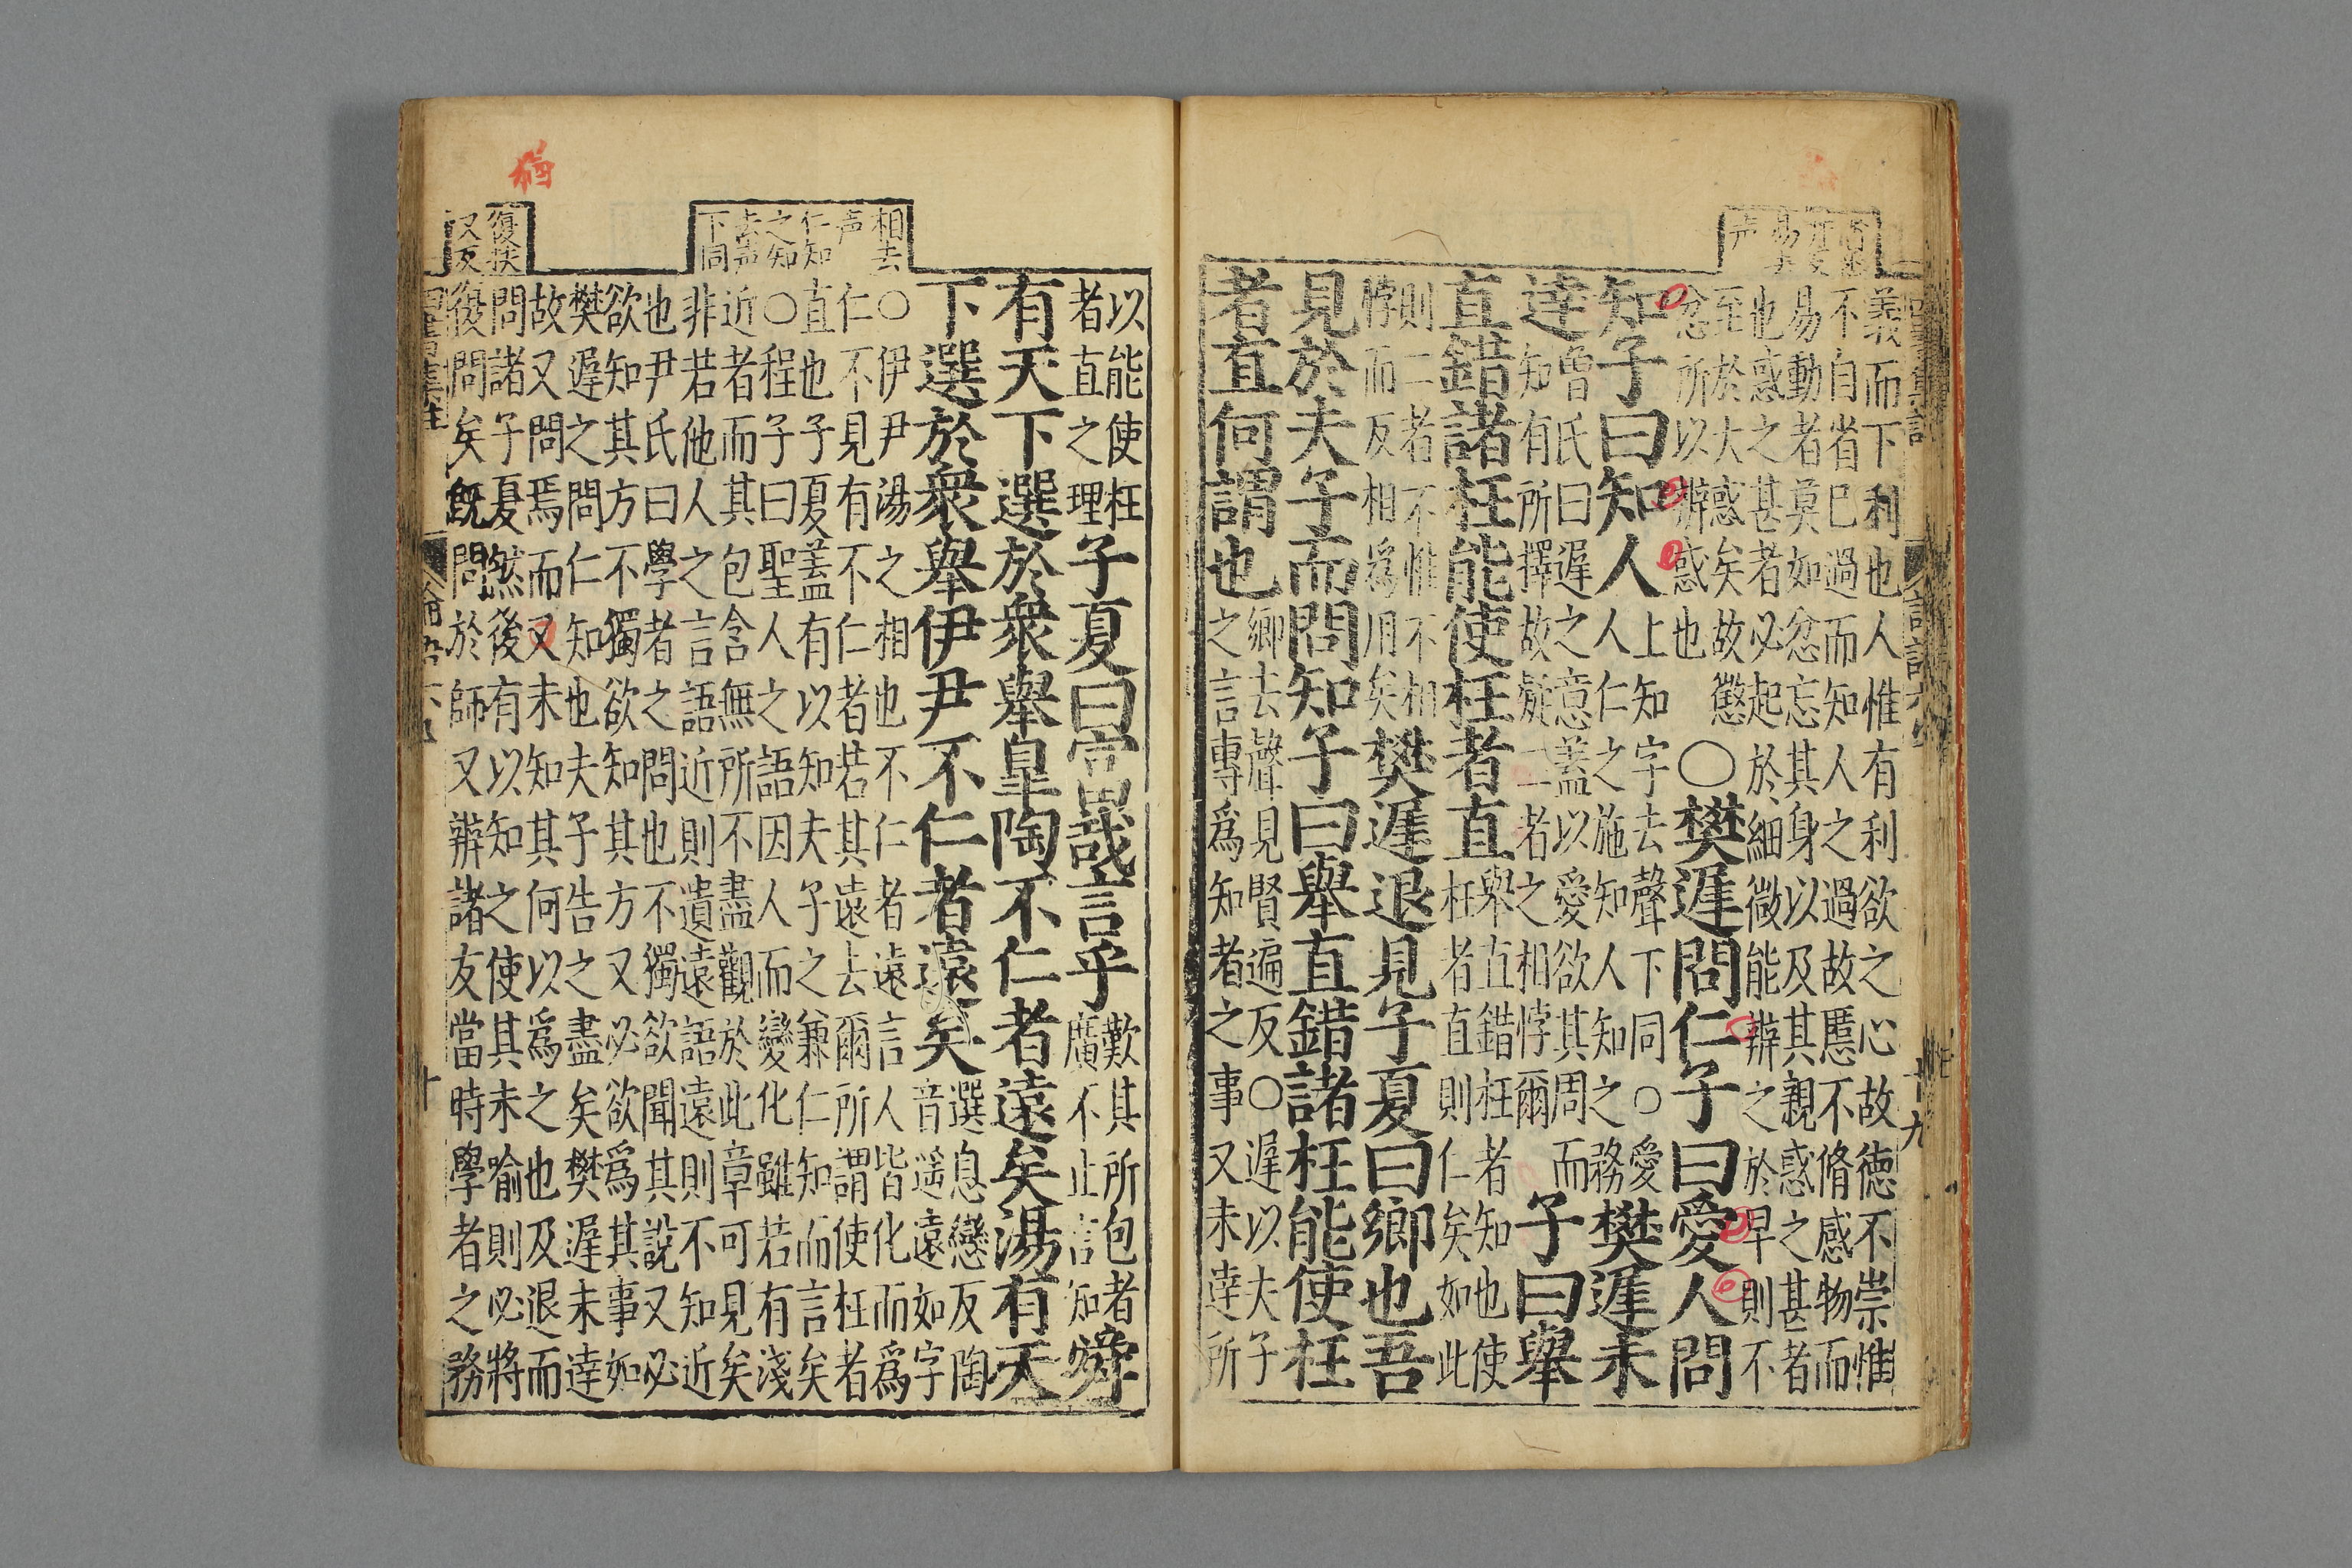 義而下利也人惟有利欲之心故徳不崇惟
不自省己過而知人之過故慝不脩感物而
易動者莫如忿忘其身以及其親惑之甚者
也惑之甚者必起於細微能辨之於早則不
至於大惑矣故懲
忿所以辨惑也
○樊遅問仁子曰愛人問
知子曰知人
上知字去聲下同○愛
人仁之施知人知之務
樊遅未
達
曽氏曰遅之意蓋以愛欲其周而
知有所擇故疑二者之相悖爾
子曰舉
直錯諸枉能使枉者直
舉直錯枉者知也使
枉者直則仁矣如此
則二者不惟不相
悖而反相爲用矣
樊遅退見子夏曰鄉也吾
見於夫子而問知子曰舉直錯諸枉能使枉
者直何謂也
鄉去聲見賢遍反○遅以夫子
之言專爲知者之事又未達所
以能使枉
者直之理
子夏曰富哉言乎
歎其所包者
廣不止言知
舜
有天下選於衆舉皐陶不仁者遠矣湯有天
下選於衆舉伊尹不仁者遠矣
選息戀反陶
音遥遠如字
○伊尹湯之相也不仁者遠言人皆化而爲
仁不見有不仁者若其遠去爾所謂使枉者
直也子夏蓋有以知夫子之兼仁知而言矣
○程子曰聖人之語因人而變化雖若有淺
近者而其包含無所不盡觀於此章可見矣
非若他人之言語近則遺遠語遠則不知近
也尹氏曰學者之問也不獨欲聞其說又必
欲知其方不獨欲知其方又必欲爲其事如
樊遅之問仁知也夫子告之盡矣樊遅未達
故又問焉而又未知其何以爲之也及退而
問諸子夏然後有以知之使其未喻則必將
復問矣既問於師又辨諸友當時學者之務
相去
声
仁知
之知
去声
下同
復扶
又反
十九